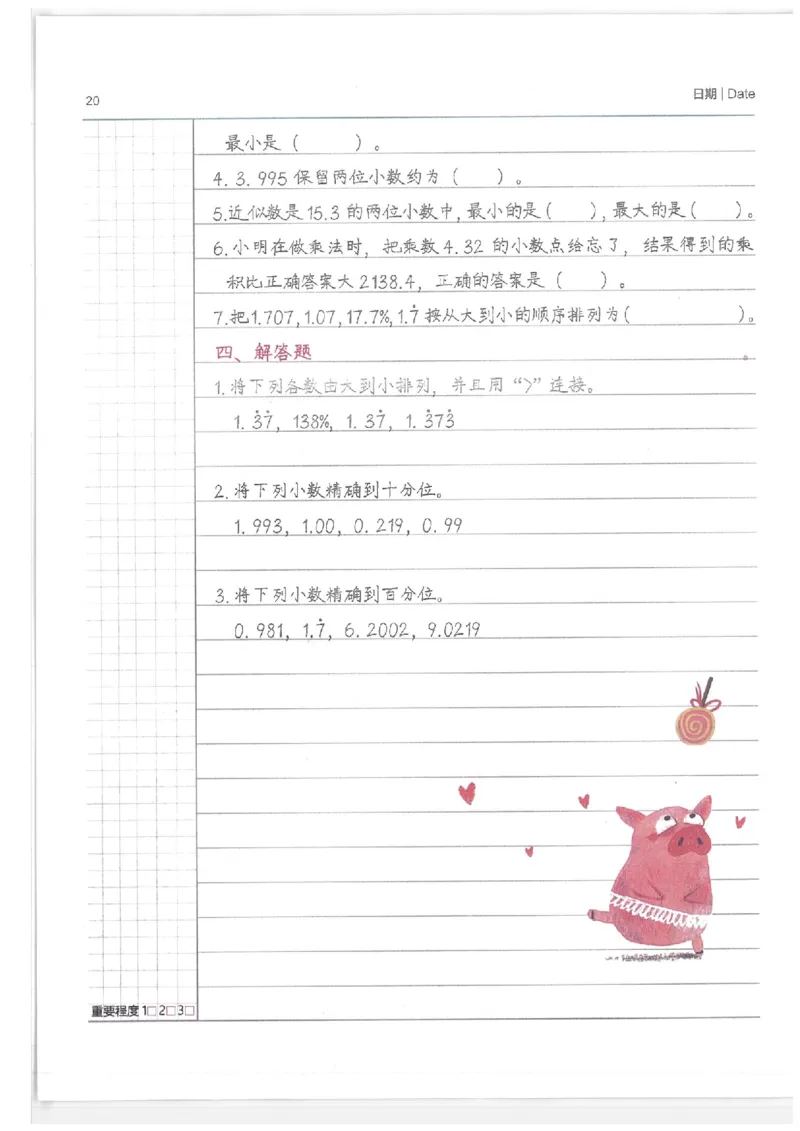 20
日期 | Date
最小是（　　）。
4. 3. 995 保留两位小数约为（　　）。
5.近似数是15.3的两位小数中，最小的是（　　），最大的是（　　）。
6.小明在做乘法时，把乘数4.32的小数点给忘了，结果得到的乘
积比正确答案大2138.4，正确的答案是（　　）。
7.把1.707，1.07，17.7%，1.7̇ 按从大到小的顺序排列为（　　　　）。
四、解答题
1.将下列各数由大到小排列，并且用“>”连接。
1. 3̇7̇，138%，1. 37̇，1. 3̇73̇
2.将下列小数精确到十分位。
1. 993，1.00，0. 219，0. 99
3.将下列小数精确到百分位。
0. 981，1.7̇，6. 2002，9.0219
重要程度 1□ 2□ 3□